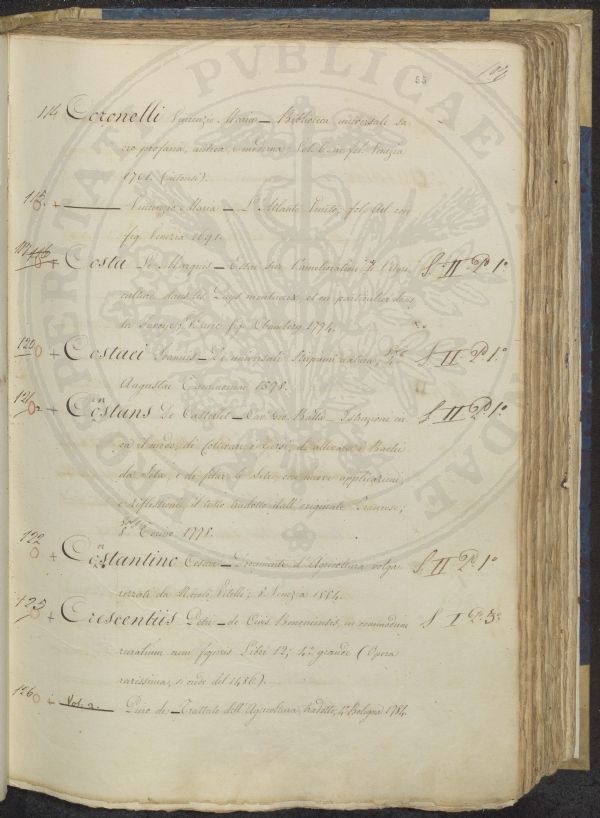 PERITATI PVBLICAE
55
114 Coronelli Vincenzo Maria _ Biblioteca universale sa
cro profana, antica, e moderna, Vol. 6 con fig. Venezia
1701.
115 + Vincenzo Maria _ L'Atlante Veneto, fol.
fig. Venezia 1691.
+ Costa De Marquis _ Essai sur l'amelioration de l'Agri S. II P. 1º
culture dans les Pays montueux, et en particulier dans
la Savoye, Chambery 1794.
120 + Costaei Joannis _ De universali Stirpium natura, S II P. 1º
Augustae Taurinorum 1578.
121 + Costans De Castellet _ Gio. Batta _ Istruzioni cir S. II P. 1º
ca il modo di coltivar i Gelsi, di allevare i Bachi
da Seta, e di filar le Sete, con nuove applicazioni,
e riflessioni, il tutto tradotto dall'originale Francese,
8º Torino 1778.
122 + Costantino Cesare _ De notevoli d'Agricoltura volga S II P. 1º
rizzati da Nicolò Vitelli; 8º Venezia 1554.
123 + Crescentiis Petri _ de Civis Bononiensis, in commodum S I P. 5º
ruralium cum figuris Libri 12; 4º grande (Opera
rarissima, si crede del 1486).
126 + Vol. 2. Piero de _ Trattato dell'Agricoltura, tradotto, 4º Bologna 1784.